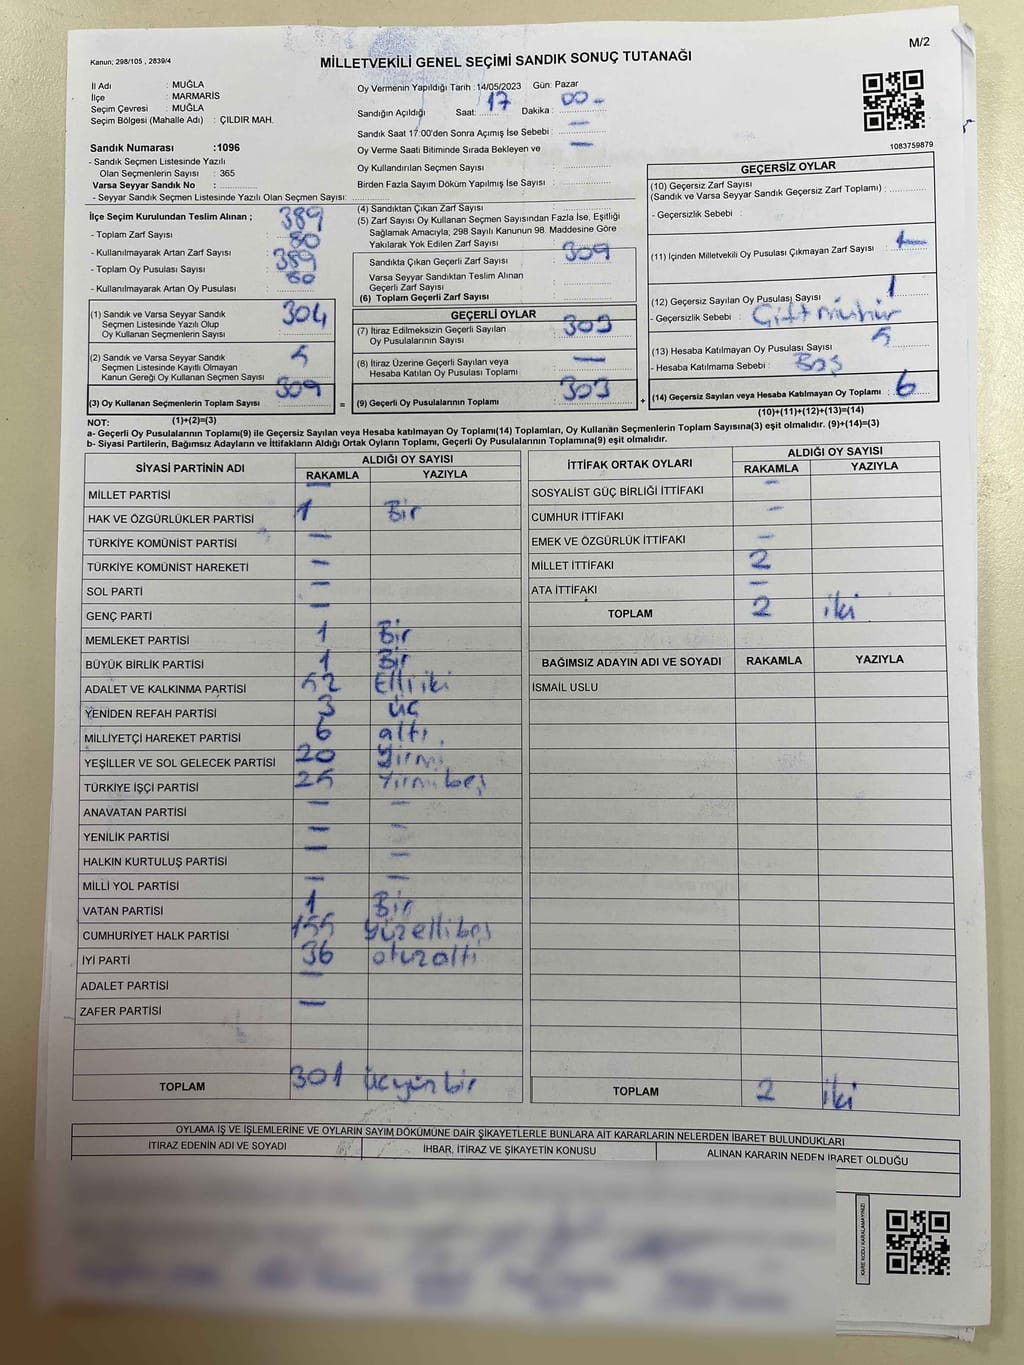 Kanun; 298/105 , 2839/4
MİLLETVEKİLİ GENEL SEÇİMİ SANDIK SONUÇ TUTANAĞI
M/2
İl Adı : MUĞLA
İlçe : MARMARİS
Seçim Çevresi : MUĞLA
Seçim Bölgesi (Mahalle Adı) : ÇILDIR MAH.
Sandık Numarası :1096
- Sandık Seçmen Listesinde Yazılı
Olan Seçmenlerin Sayısı : 365
Varsa Seyyar Sandık No :
- Seyyar Sandık Seçmen Listesinde Yazılı Olan Seçmen Sayısı:
Oy Vermenin Yapıldığı Tarih : 14/05/2023 Gün: Pazar
Sandığın Açıldığı Saat: 17 Dakika : 00
Sandık Saat 17:00'den Sonra Açımış İse Sebebi : —
Oy Verme Saati Bitiminde Sırada Bekleyen ve —
Oy Kullandırılan Seçmen Sayısı :
Birden Fazla Sayım Döküm Yapılmış İse Sayısı :
1083759879
İlçe Seçim Kurulundan Teslim Alınan ;
- Toplam Zarf Sayısı : 389
- Kullanılmayarak Artan Zarf Sayısı : 80
- Toplam Oy Pusulası Sayısı : 389
- Kullanılmayarak Artan Oy Pusulası : 80
(1) Sandık ve Varsa Seyyar Sandık
Seçmen Listesinde Yazılı Olup
Oy Kullanan Seçmenlerin Sayısı : 304
(2) Sandık ve Varsa Seyyar Sandık
Seçmen Listesinde Kayıtlı Olmayan
Kanun Gereği Oy Kullanan Seçmen Sayısı : 5
(3) Oy Kullanan Seçmenlerin Toplam Sayısı : 309
(1)+(2)=(3)
(4) Sandıktan Çıkan Zarf Sayısı :
(5) Zarf Sayısı Oy Kullanan Seçmen Sayısından Fazla İse, Eşitliği
Sağlamak Amacıyla; 298 Sayılı Kanunun 98. Maddesine Göre
Yakılarak Yok Edilen Zarf Sayısı :
Sandıkta Çıkan Geçerli Zarf Sayısı : 309
Varsa Seyyar Sandıktan Teslim Alınan
Geçerli Zarf Sayısı :
(6) Toplam Geçerli Zarf Sayısı :
GEÇERLİ OYLAR
(7) İtiraz Edilmeksizin Geçerli Sayılan
Oy Pusulalarının Sayısı : 303
(8) İtiraz Üzerine Geçerli Sayılan veya
Hesaba Katılan Oy Pusulası Toplamı : —
= (9) Geçerli Oy Pusulalarının Toplamı : 303 +
GEÇERSİZ OYLAR
(10) Geçersiz Zarf Sayısı
(Sandık ve Varsa Seyyar Sandık Geçersiz Zarf Toplamı) :
- Geçersizlik Sebebi :
(11) İçinden Milletvekili Oy Pusulası Çıkmayan Zarf Sayısı :
(12) Geçersiz Sayılan Oy Pusulası Sayısı : 1
- Geçersizlik Sebebi : Çift mühür
(13) Hesaba Katılmayan Oy Pusulası Sayısı : 5
- Hesaba Katılmama Sebebi : Boş
(14) Geçersiz Sayılan veya Hesaba Katılmayan Oy Toplamı : 6
(10)+(11)+(12)+(13)=(14)
NOT:
a- Geçerli Oy Pusulalarının Toplamı(9) ile Geçersiz Sayılan veya Hesaba katılmayan Oy Toplamı(14) Toplamları, Oy Kullanan Seçmenlerin Toplam Sayısına(3) eşit olmalıdır. (9)+(14)=(3)
b- Siyasi Partilerin, Bağımsız Adayların ve İttifakların Aldığı Ortak Oyların Toplamı, Geçerli Oy Pusulalarının Toplamına(9) eşit olmalıdır.
SİYASİ PARTİNİN ADI ALDIĞI OY SAYISI
RAKAMLA YAZIYLA
MİLLET PARTİSİ —
HAK VE ÖZGÜRLÜKLER PARTİSİ 1 Bir
TÜRKİYE KOMÜNİST PARTİSİ —
TÜRKİYE KOMÜNİST HAREKETİ —
SOL PARTİ —
GENÇ PARTİ —
MEMLEKET PARTİSİ 1 Bir
BÜYÜK BİRLİK PARTİSİ 1 Bir
ADALET VE KALKINMA PARTİSİ 52 Elli iki
YENİDEN REFAH PARTİSİ 3 üç
MİLLİYETÇİ HAREKET PARTİSİ 6 altı
YEŞİLLER VE SOL GELECEK PARTİSİ 20 yirmi
TÜRKİYE İŞÇİ PARTİSİ 25 Yirmibeş
ANAVATAN PARTİSİ — —
YENİLİK PARTİSİ — —
HALKIN KURTULUŞ PARTİSİ — —
MİLLİ YOL PARTİSİ — —
VATAN PARTİSİ 1 Bir
CUMHURİYET HALK PARTİSİ 155 yüzellibeş
İYİ PARTİ 36 otuzaltı
ADALET PARTİSİ —
ZAFER PARTİSİ —
TOPLAM 301 üçyüzbir
İTTİFAK ORTAK OYLARI ALDIĞI OY SAYISI
RAKAMLA YAZIYLA
SOSYALİST GÜÇ BİRLİĞİ İTTİFAKI —
CUMHUR İTTİFAKI —
EMEK VE ÖZGÜRLÜK İTTİFAKI —
MİLLET İTTİFAKI 2
ATA İTTİFAKI —
TOPLAM 2 iki
BAĞIMSIZ ADAYIN ADI VE SOYADI RAKAMLA YAZIYLA
İSMAİL USLU
TOPLAM 2 iki
OYLAMA İŞ VE İŞLEMLERİNE VE OYLARIN SAYIM DÖKÜMÜNE DAİR ŞİKAYETLERLE BUNLARA AİT KARARLARIN NELERDEN İBARET BULUNDUKLARI
İTİRAZ EDENİN ADI VE SOYADI İHBAR, İTİRAZ VE ŞİKAYETİN KONUSU ALINAN KARARIN NEDEN İBARET OLDUĞU
KARE KODU KARALAMAYINIZ!